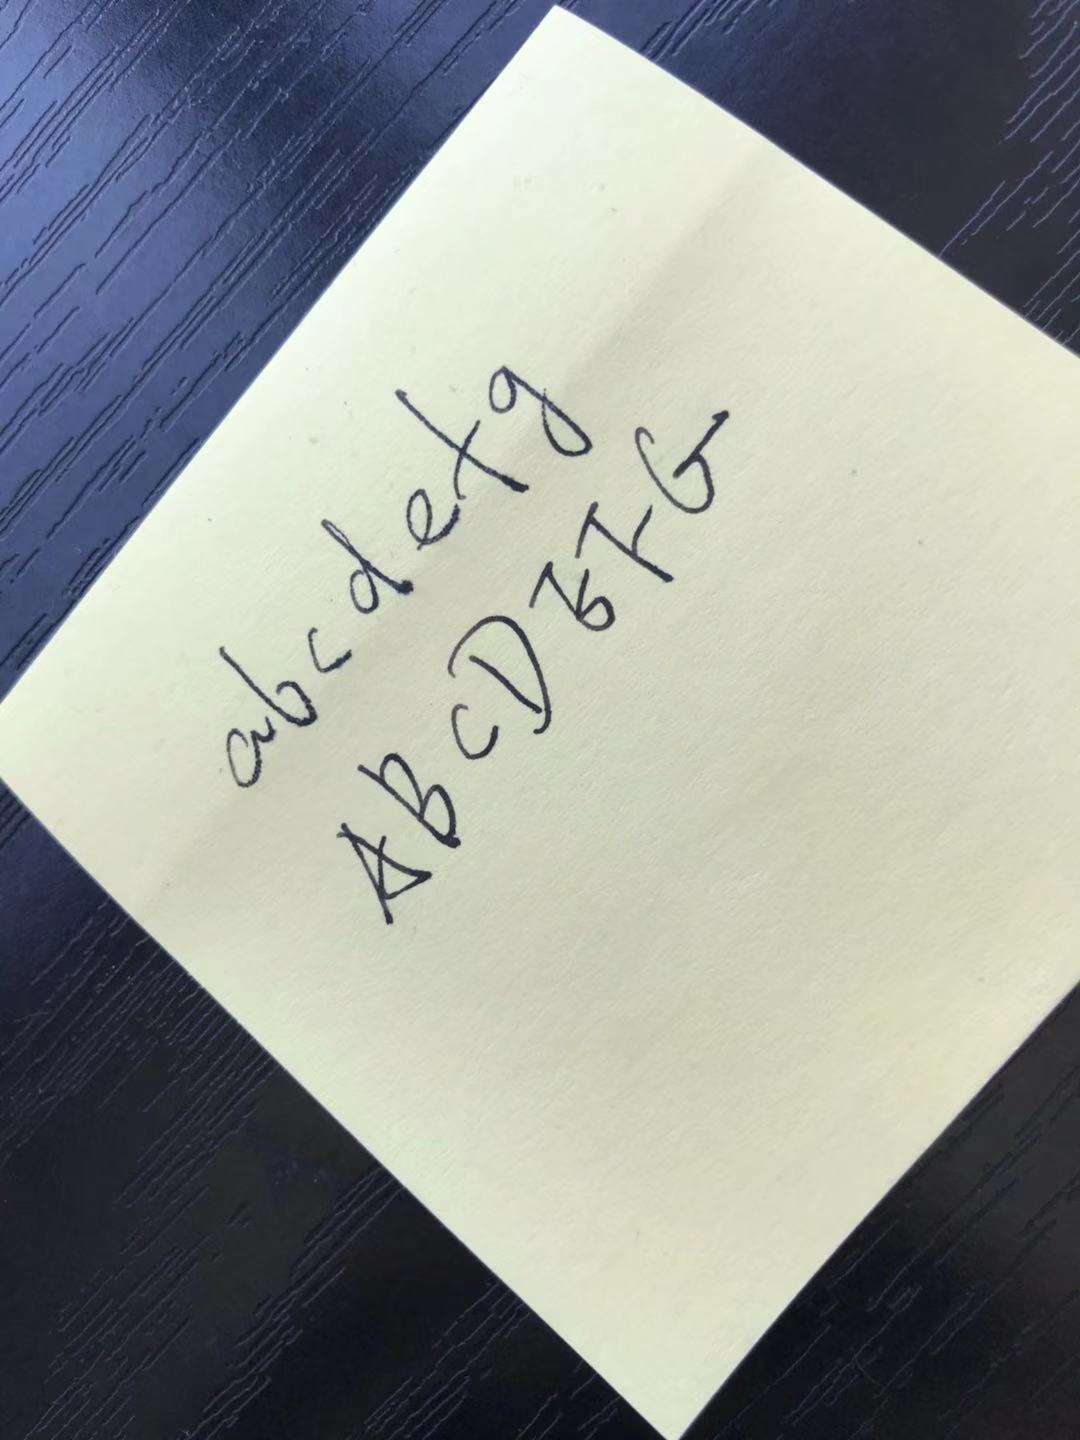 abcdefg
ABCDEFG